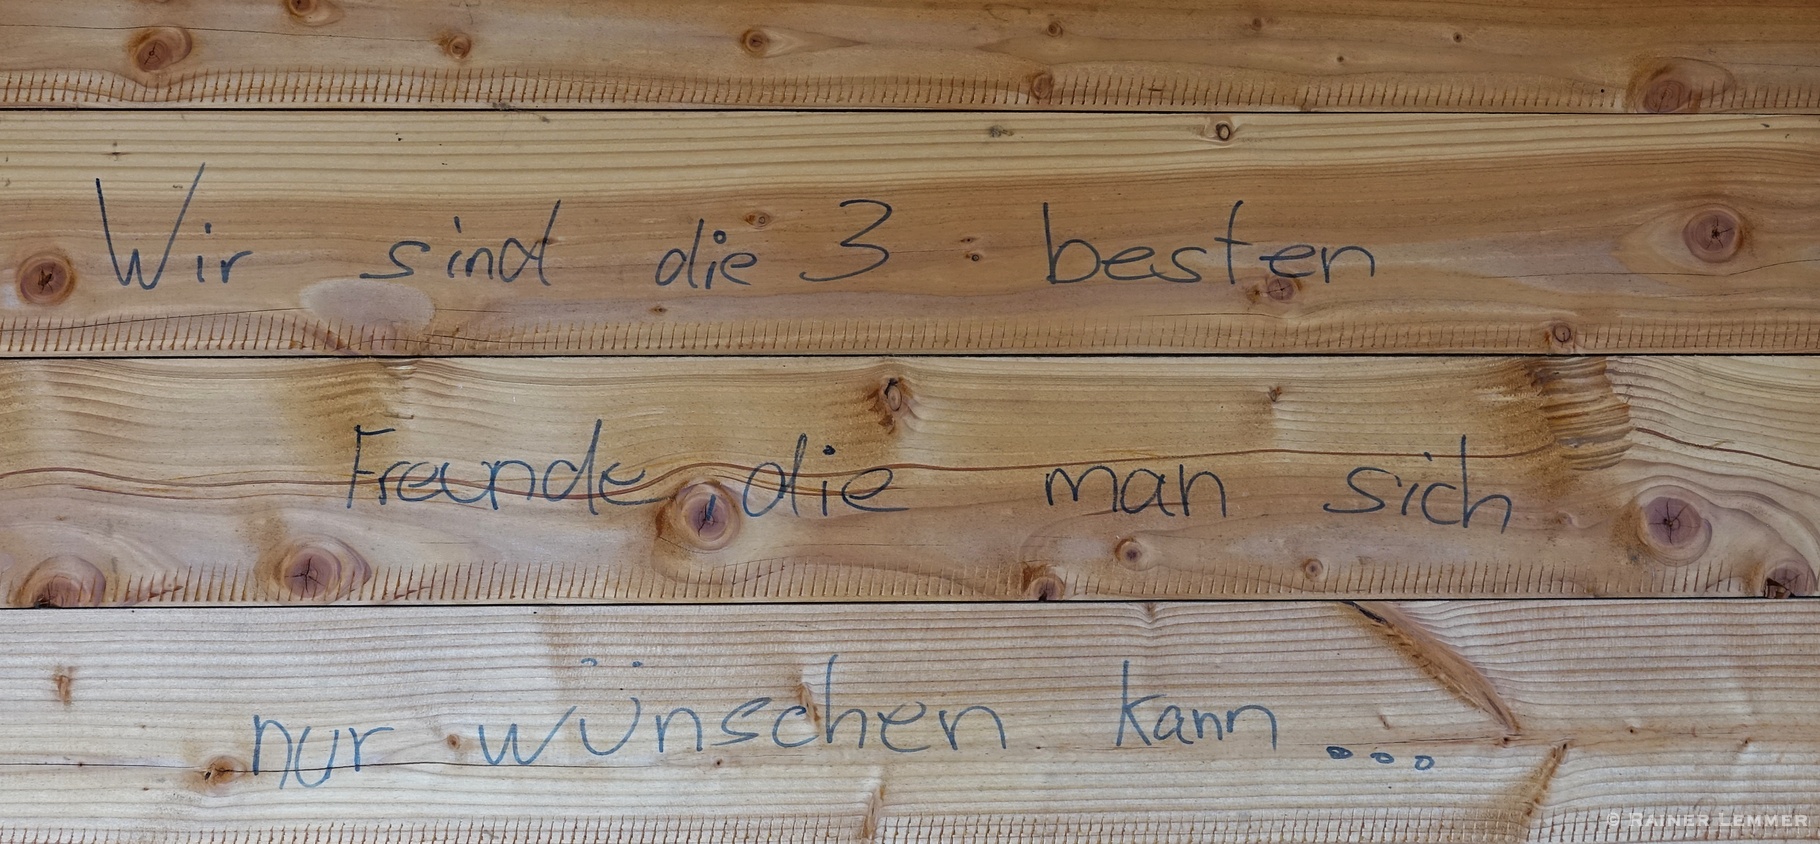 Wir sind die 3 besten
Freunde, die man sich
nur wünschen kann ...
© Rainer Lemmer